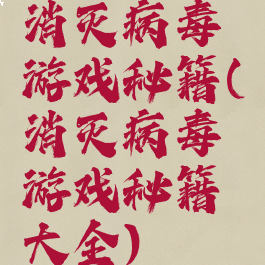 消灭病毒
游戏秘籍(
消灭病毒
游戏秘籍
大全)